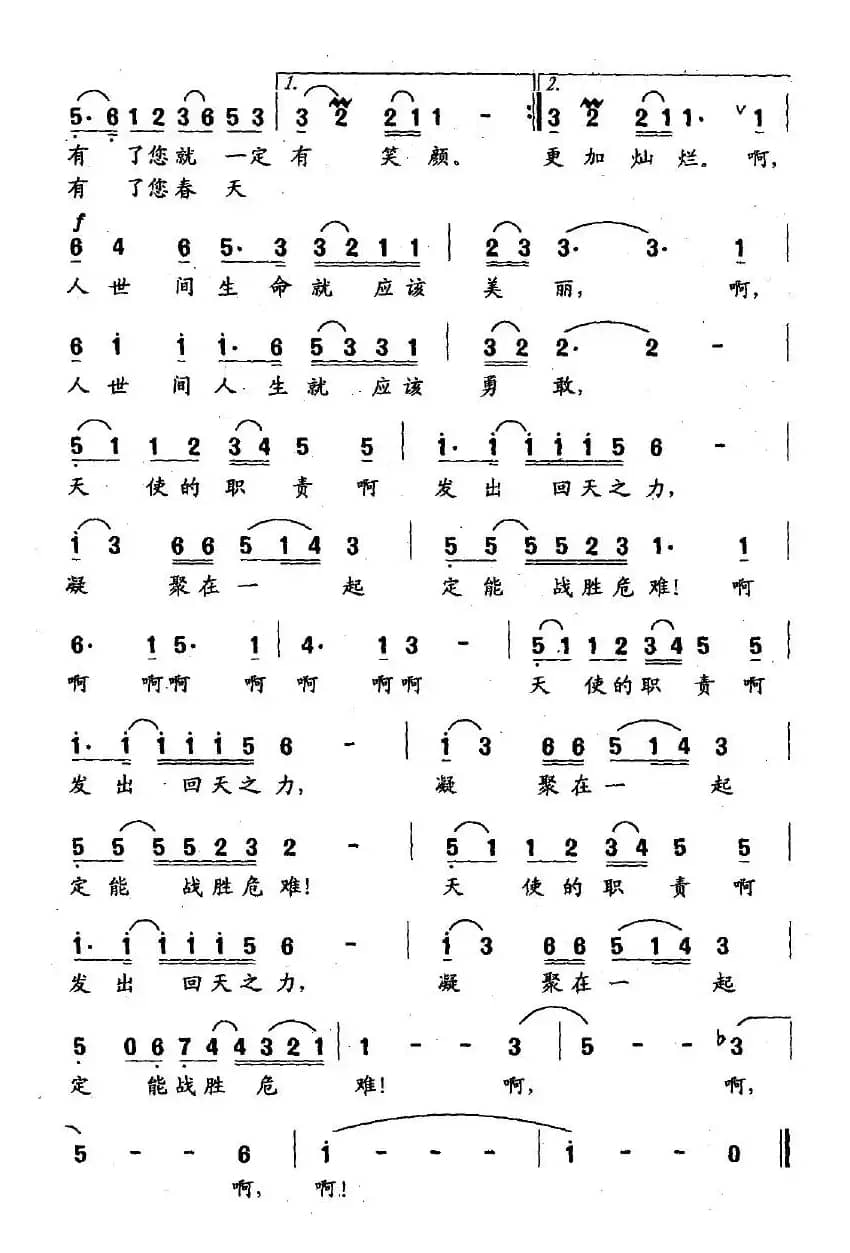 1. 2.
5· 6 1 2 3 6 5 3 3 2 2 1 1 1 - 3 2 2 1 1 1· V 1
有 了您就 一定有 笑颜。 更加灿烂。啊,
有 了您春天
f
6 4 6 5· 3 3 2 1 1 | 2 3 3· 3· 1 |
人世间生命就应该 美丽, 啊,
6 1 1 1· 6 5 3 3 1 | 3 2 2· 2 - |
人世间人生就应该 勇敢,
5 1 1 2 3 4 5 5 | 1· 1 1 1 1 5 6 - |
天使的职责啊 发出回天之力,
1 3 6 6 5 1 4 3 | 5 5 5 5 2 3 1· 1 |
凝聚在一起 定能战胜危难!啊
6· 1 5· 1 | 4· 1 3 - | 5 1 1 2 3 4 5 5 |
啊 啊啊 啊 啊 啊啊 天使的职责啊
1· 1 1 1 1 5 6 - | 1 3 6 6 5 1 4 3 |
发出回天之力, 凝聚在一起
5 5 5 5 2 3 2 - | 5 1 1 2 3 4 5 5 |
定能战胜危难! 天使的职责啊
1· 1 1 1 1 5 6 - | 1 3 6 6 5 1 4 3 |
发出回天之力, 凝聚在一起
5 0 6 7 4 4 3 2 1 | 1 - - 3 | 5 - - ♭3 |
定 能战胜危 难! 啊, 啊,
5 - - 6 | 1 - - - | 1 - - 0 ‖
啊, 啊!